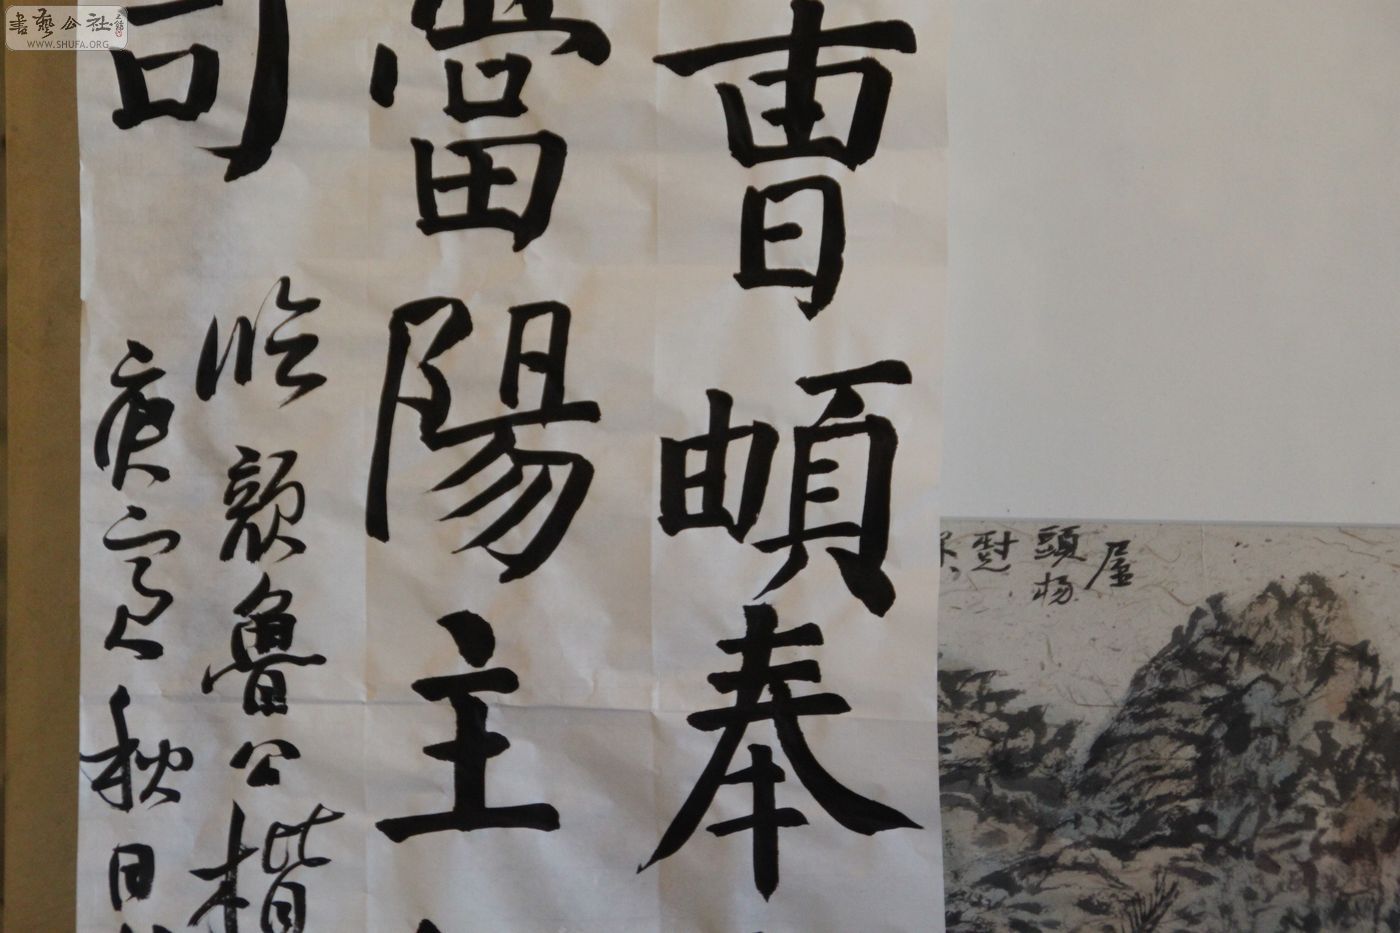 曹頔奉
當陽主
司
臨顏魯公楷
庚寅秋日
屋
頭楊
慰
書藝公社
WWW.SHUFA.ORG